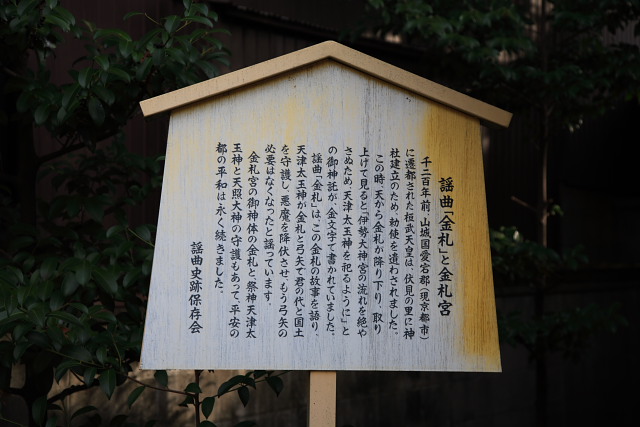 謡曲「金札」と金札宮
千二百年前、山城国愛宕郡（現京都市）
に遷都された桓武天皇は、伏見の里に神
社建立のため、勅使を遣わされました。
この時、天から金札が降り下り、取り
上げて見ると「伊勢大神宮の流れを絶や
さぬため、天津太玉神を祀るように」と
の御神託が、金文字で書かれていました。
謡曲「金札」は、この金札の故事を語り、
天津太玉神が金札と弓矢で君の代と国土
を守護し、悪魔を降伏させ、もう弓矢の
必要はなくなったと謡っています。
金札宮の御神体の金札と、祭神天津太
玉神と天照大神の守護もあって、平安の
都の平和は永く続きました。
謡曲史跡保存会